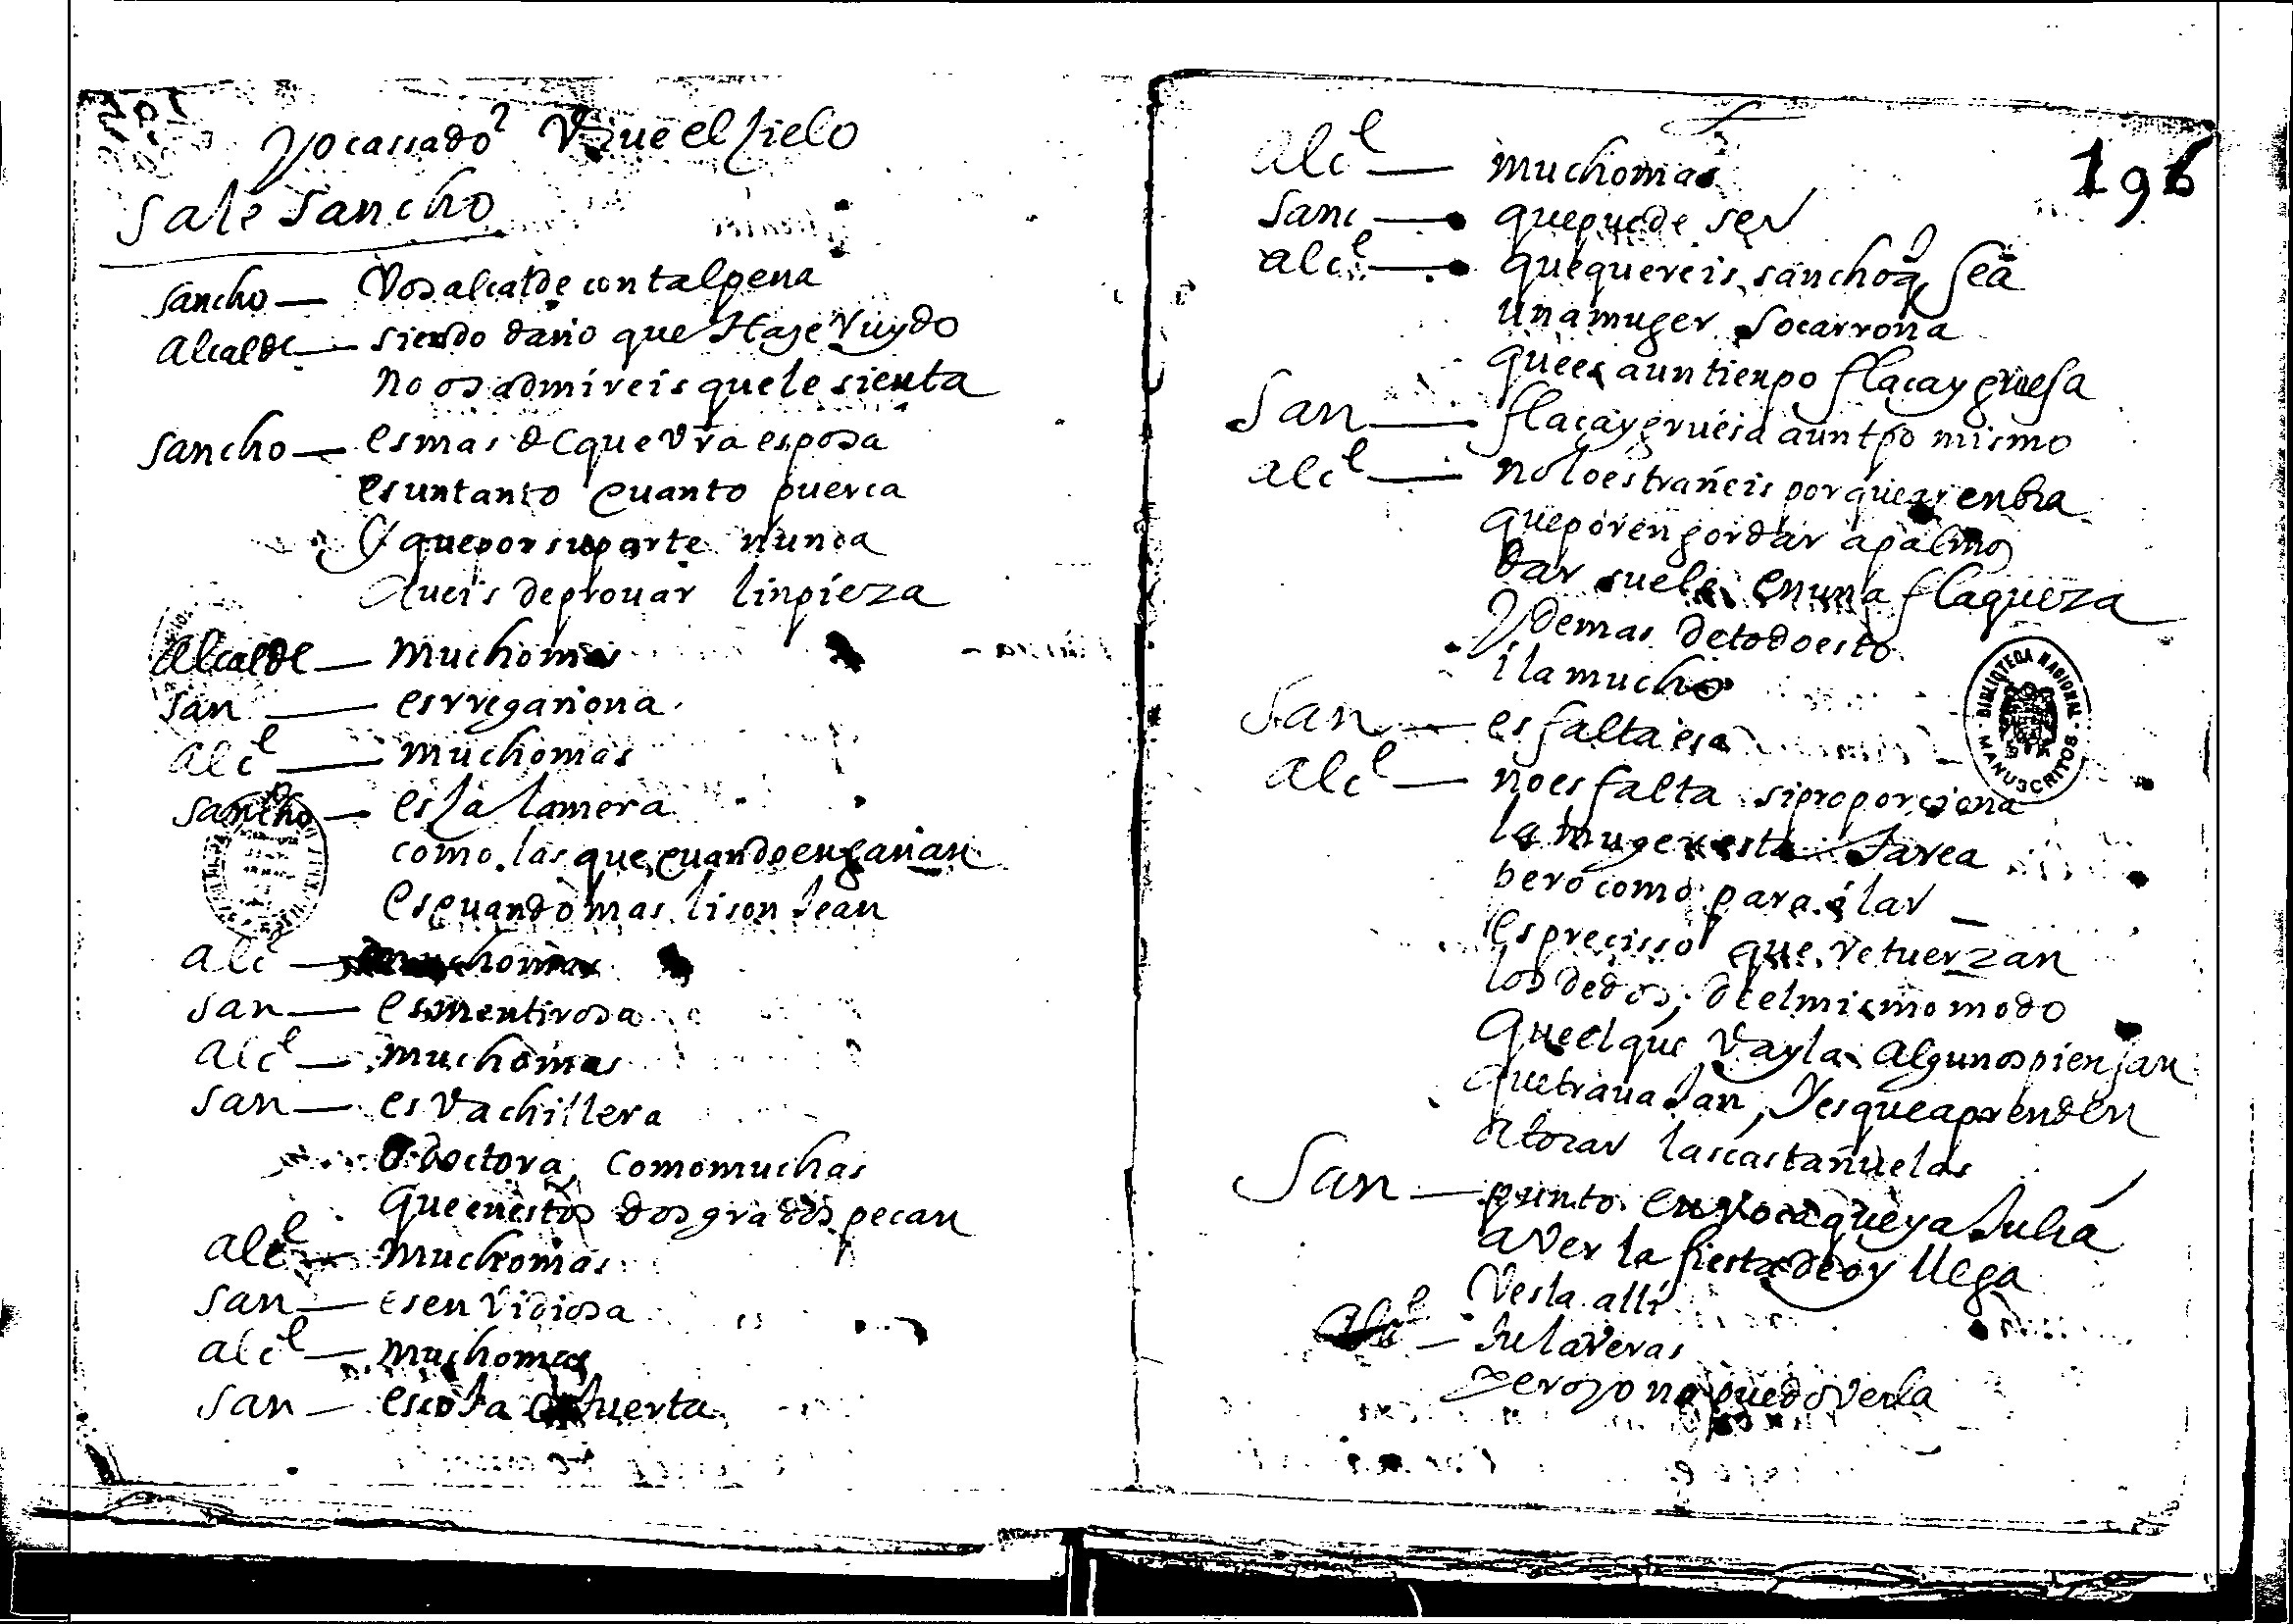 Yo cassado? Viue el zielo
Sale Sancho
Sancho — Vos alcalde con tal pena
Alcalde — siendo daño que Haze Ruydo
no os admireis que le sienta
Sancho — es mas de que vra esposa
es un tanto cuanto puerca
y que por su parte nunca
aueis de prouar linpieza
Alcalde — mucho mas
San — es rregañona
Alcl — mucho mas
Sancho — es lalamera
como las que cuando engañan
es cuando mas lisonjean
Alcl — mucho mas
San — es mentirosa
Alcl — mucho mas
San — es Vachillera
o doctora, como muchas
que en estos dos grados pecan
Alcl — mucho mas
San — es envidiosa
Alcl — mucho mas
San — es coja o tuerta
196
Alcl — mucho mas
Sanc — que puede ser
Alcl — que quereis sancho q sea
una muger socarrona
que es a un tienpo flaca y gruesa
San — flaca y gruesa a un tpo mismo
Alcl — no lo estrañeis porque es enbra
que por engordar a palmos
dar suele en una flaqueza
Y demas de todo esto
ila mucho
San — es falta esa
Alcl — no es falta si proporciona
la muger esta tarea
pero como para ilar
es precisso que retuerzan
los dedos, de el mismo modo
que el que vayla algunos piensan
que trauajan, y es que aprenden
a tocar las castañuelas
San — punto en voca que ya Julia
a ver la fiesta de oy llega
Vesla alli
Alcl — tu la veras
pero yo no puedo verla
BIBLIOTECA NACIONAL
MANUSCRITOS